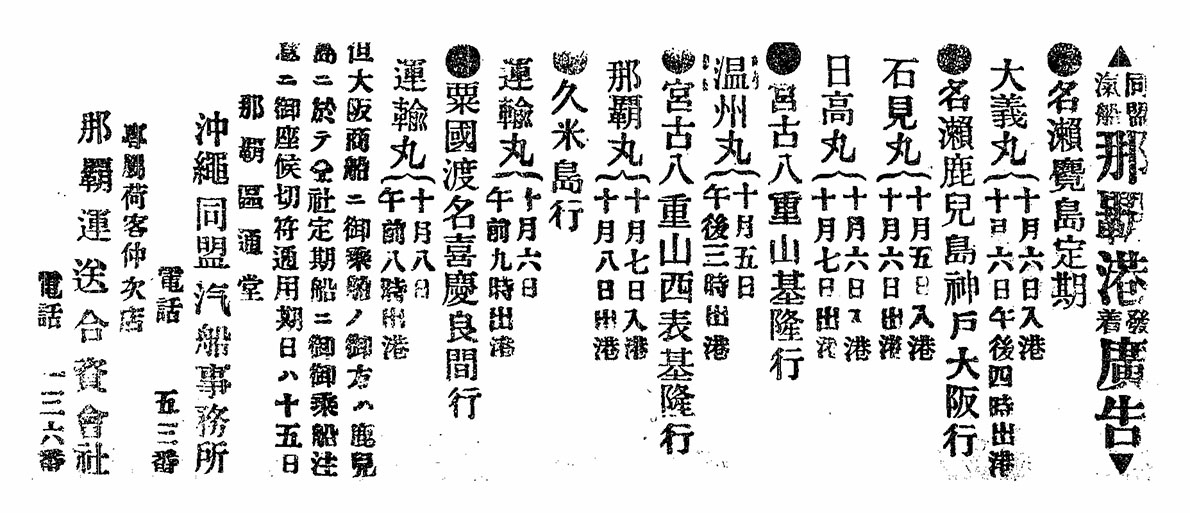 ▲同盟汽船那覇港發着廣告▼
●名瀬鹿島定期
大義丸
十月六日入港
十月六日午後四時出港
●名瀬鹿兒島神戸大阪行
石見丸
十月五日入港
十月六日出港
日高丸
十月六日入港
十月七日出港
●宮古八重山基隆行
温州丸
十月五日
午後三時出港
●宮古八重山西表基隆行
那覇丸
十月七日入港
十月八日出港
●久米島行
運輸丸
十月六日
午前九時出港
●粟國渡名喜慶良間行
運輸丸
十月八日
午前八時出港
但大阪商船ニ御乘
ノ御方ハ鹿兒
島ニ於テ仝社定期船ニ御御乘船注
意ニ御座候切符通用期日ハ十五日
那覇區通堂
沖繩同盟汽船事務所
電話 五三番
專屬荷客仲次店
那覇運送合資會社
電話 一三六番